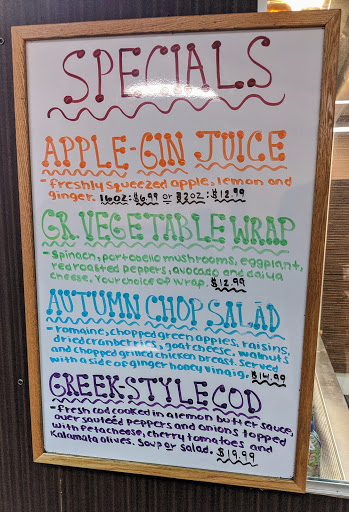 SPECIALS
APPLE-GIN JUICE
- freshly squeezed apple, lemon and
ginger. 16oz: $6.99 or 32oz: $12.99
GR. VEGETABLE WRAP
- Spinach, portobello mushrooms, eggplant,
red roasted peppers, avocado and daiya
cheese. Your choice of wrap. $12.99
AUTUMN CHOP SALAD
- romaine, chopped green apples, raisins,
dried cranberries, goat cheese, walnuts
and chopped grilled chicken breast. Served
with a side of ginger honey vinaig. $14.99
GREEK-STYLE COD
- Fresh cod cooked in a lemon butter sauce,
over sautéed peppers and onions topped
with Feta cheese, cherry tomatoes and
Kalamata olives. Soup or salad. $19.99